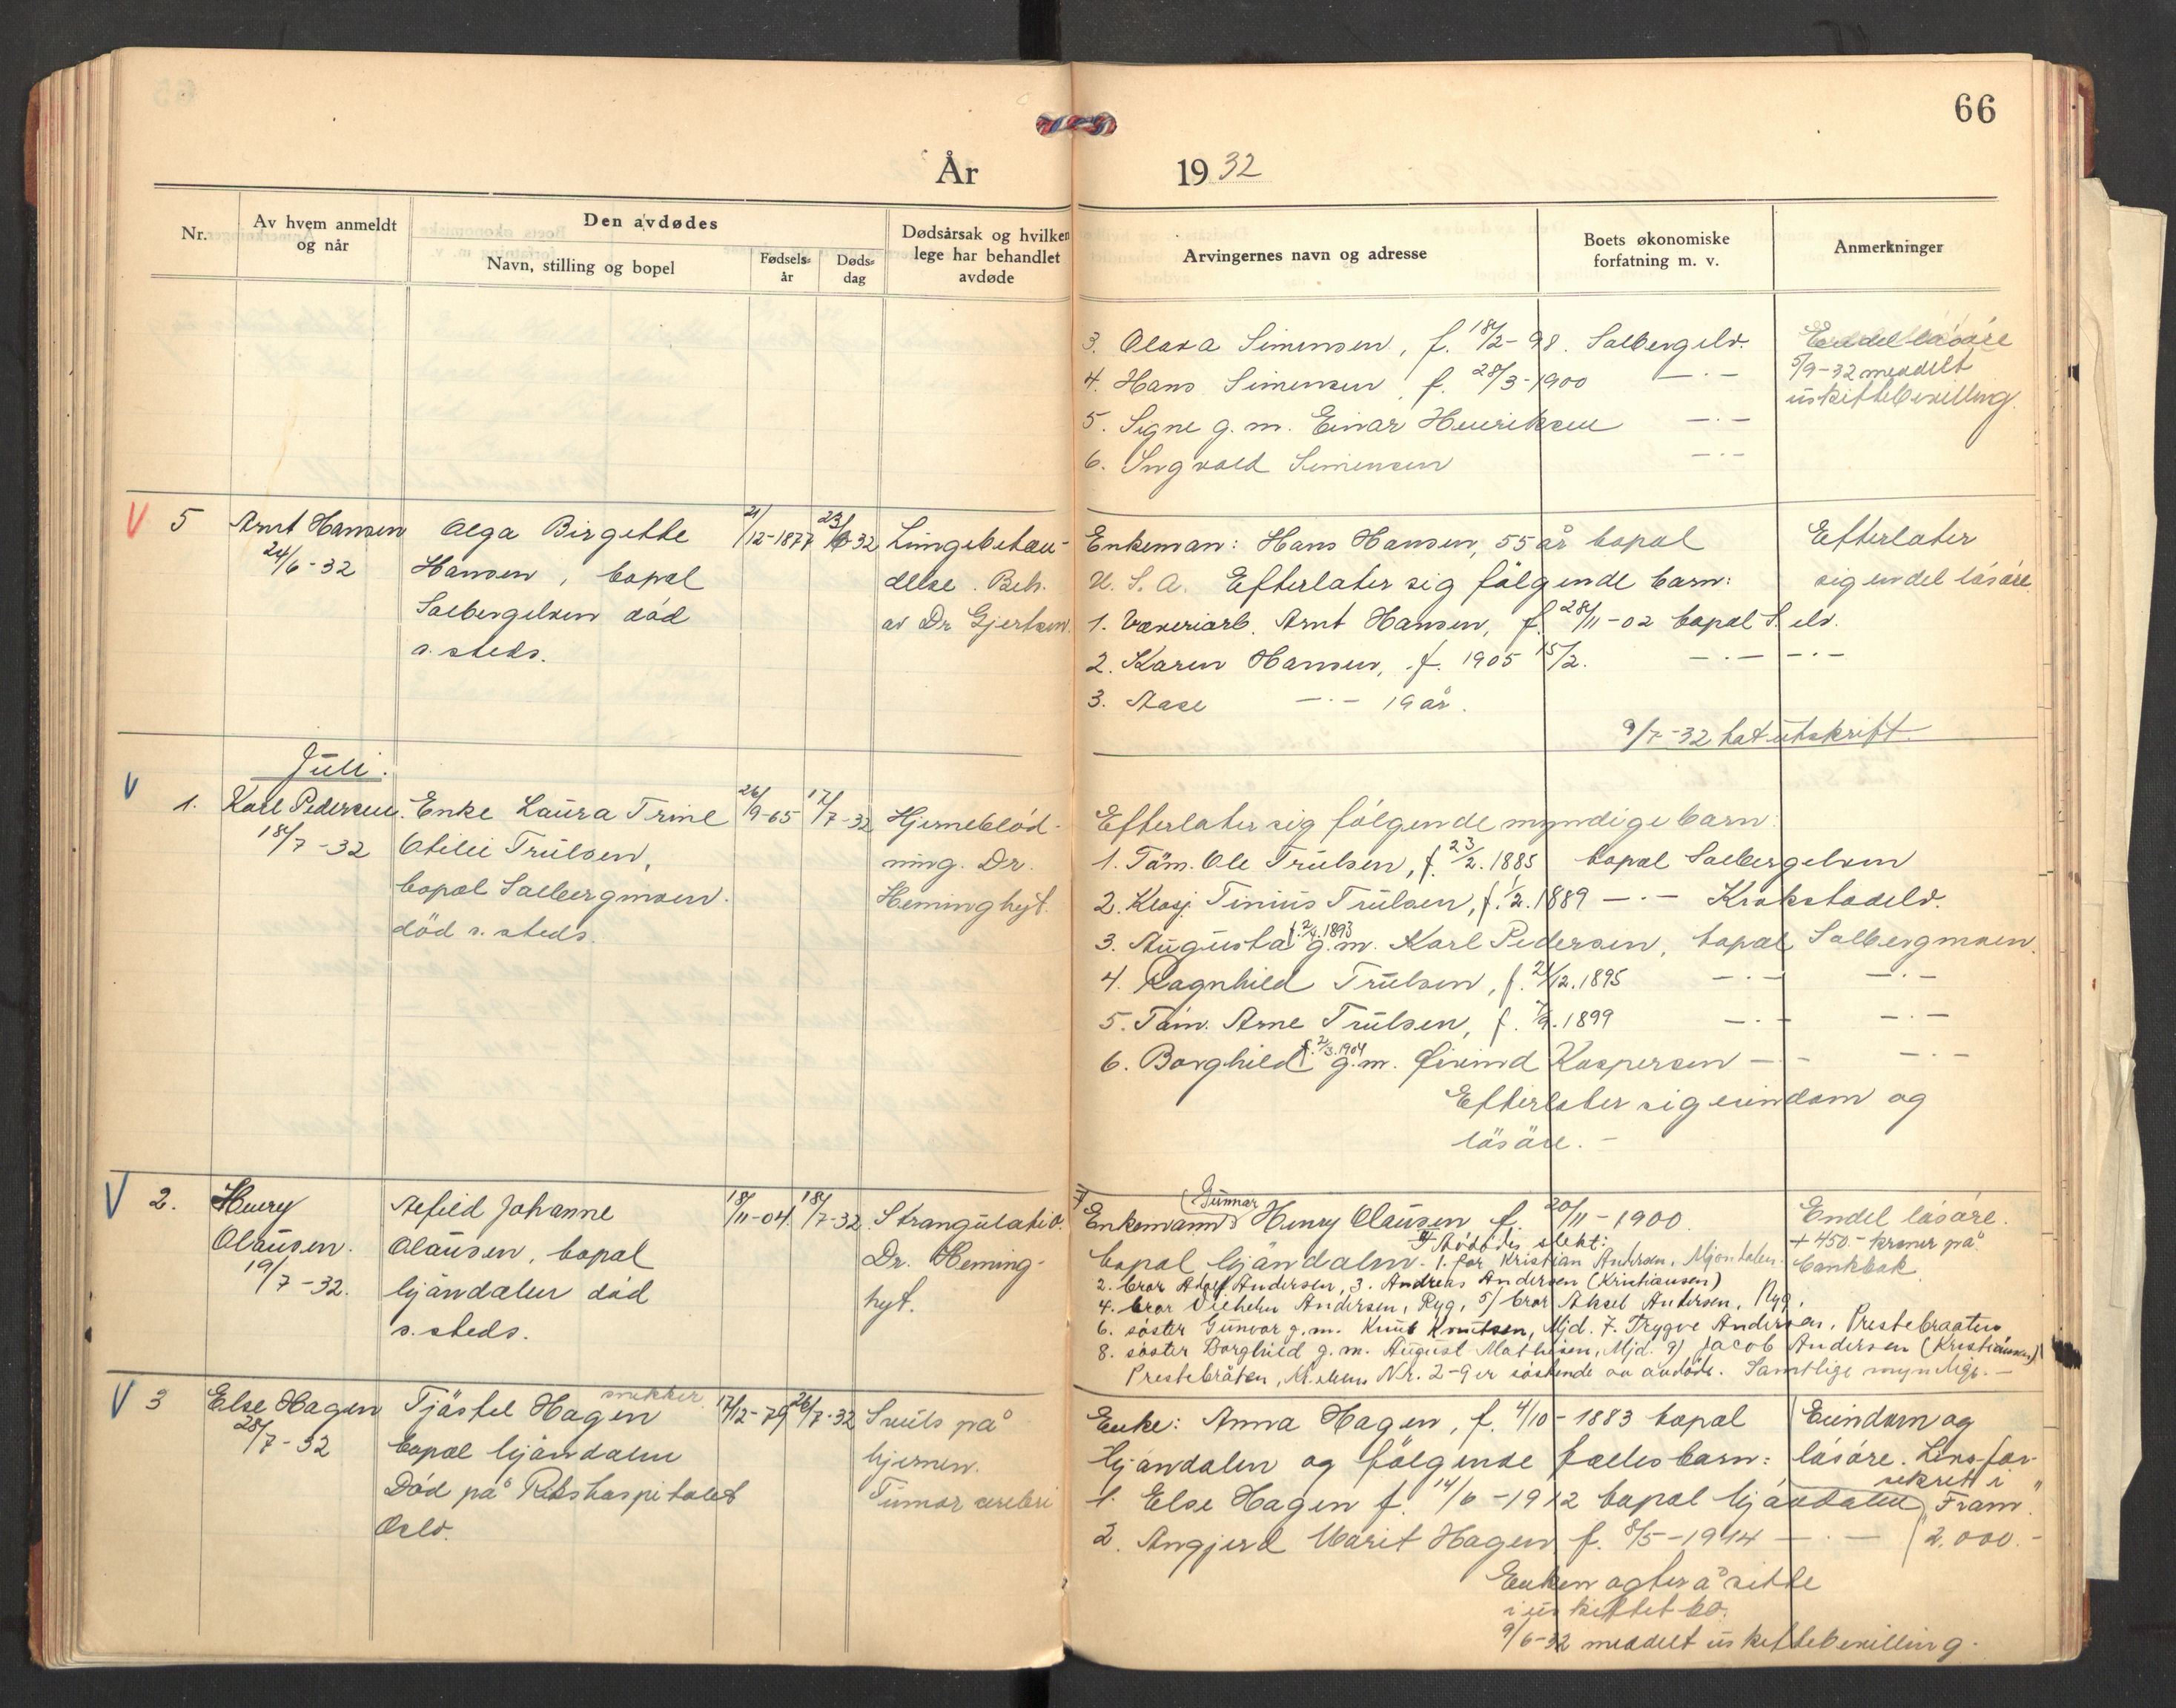 66
År 1932
Nr.
Av hvem anmeldt og når
Den avdødes
Navn, stilling og bopel
Fødselsår
Dødsdag
Dødsårsak og hvilken lege har behandlet avdøde
Arvingernes navn og adresse
Boets økonomiske forfatning m. v.
Anmerkninger
3. Olava Simensen, f. 18/2-98. Solbergelv.
4. Hans Simensen, f. 28/3-1900 —·—
5. Signe g. m. Einar Henriksen —·—
6. Ingvald Simensen —·—
Endel løsøre
5/9-32 meddelt
uskiftebevilling.
V 5
Arnt Hansen
24/6-32
Olga Birgitte
Hansen, bopal
Solbergelven død
s. steds.
21/12-1877
23/6-32
Lungebetæn-
delse. Beh.
av Dr Gjertsen.
Enkeman: Hans Hansen, 55 år bopal
U. S. A. Efterlater sig følgende barn:
1. Væveriarb. Arnt Hansen, f. 28/11-02 bopal S. elv.
2. Karen Hansen, f. 1905 15/2. —·— —·—
3. Aase —·— 19 år.
9/7-32 tat utskrift.
Efterlater
sig endel løsøre.
Juli.
V 1.
Karl Pedersen.
18/7-32
Enke Laura Trine
Otilie Trulsen,
bopal Solbergmoen.
død s. steds.
26/9-65
17/7-32
Hjerneblød-
ning. Dr.
Heminghyt.
Efterlater sig følgende myndige barn:
1. Tøm. Ole Trulsen, f. 23/2. 1885 bopal Solbergelven
2. Tinius Trulsen, f. 1/2. 1889 —·— Krokstadelv.
3. Augusta f. 2/4. 1893 g. m. Karl Pedersen, bopal Solbergmoen.
4. Ragnhild Trulsen, f. 21/12. 1895 —·— —·—
5. Tøm. Arne Trulsen, f. 1899 —·— —·—
6. Borghild f. 2/3. 1904 g. m. Øivind Kaspersen —·— —·—
Efterlater sig eiendom og
løsøre. —
V 2.
Henry
Clausen.
19/7-32.
Alfild Johanne
Clausen, bopal
Mjøndalen død
s. steds.
18/11-04.
18/7-32.
Strangulatio.
Dr. Heming-
hyt.
I Enkemann Gunnar Henry Clausen f. 20/11-1900.
II Avdødes slekt:
bopal Mjøndalen. 1. far Kristian Andersen, Mjøndalen.
2. bror Adolf Andersen, 3. Andreas Andersen (Kristiansen)
4. bror Vilhelm Andersen, Ryg, 5) bror Aksel Andersen, Ryg,
6. søster Gunvor g. m. Knut Knutsen, Mjd. 7. Trygve Andersen, Prestebraaten
8. søster Borghild g. m. August Mathisen, Mjd. 9) Jacob Andersen (Kristiansen)
Prestebråten, N.r. 2-9 er søskende av avdøde. Samtlige myndige. —
Endel løsøre.
+ 450.- kroner på
bankbok
V 3
Else Hagen
28/7-32
Tjøstel Hagen snekker
bopal Mjøndalen
Død på Rikshospitalet
Oslo.
17/12-79
26/7-32
Svuls på
hjernen.
Tumor cerebri
Enke: Anna Hagen, f. 4/10-1883 bopal
Mjøndalen og følgende fælles barn:
1. Else Hagen f. 14/6-1912 bopal Mjøndalen
2. Angjerd Marit Hagen f. 8/5-1914 —·—
Enken agter å sitte
i uskiftet bo.
9/6-32 meddelt uskiftebevilling.
Eiendom og
løsøre. Livsfor-
sikret i
"Fram"
2.000.-